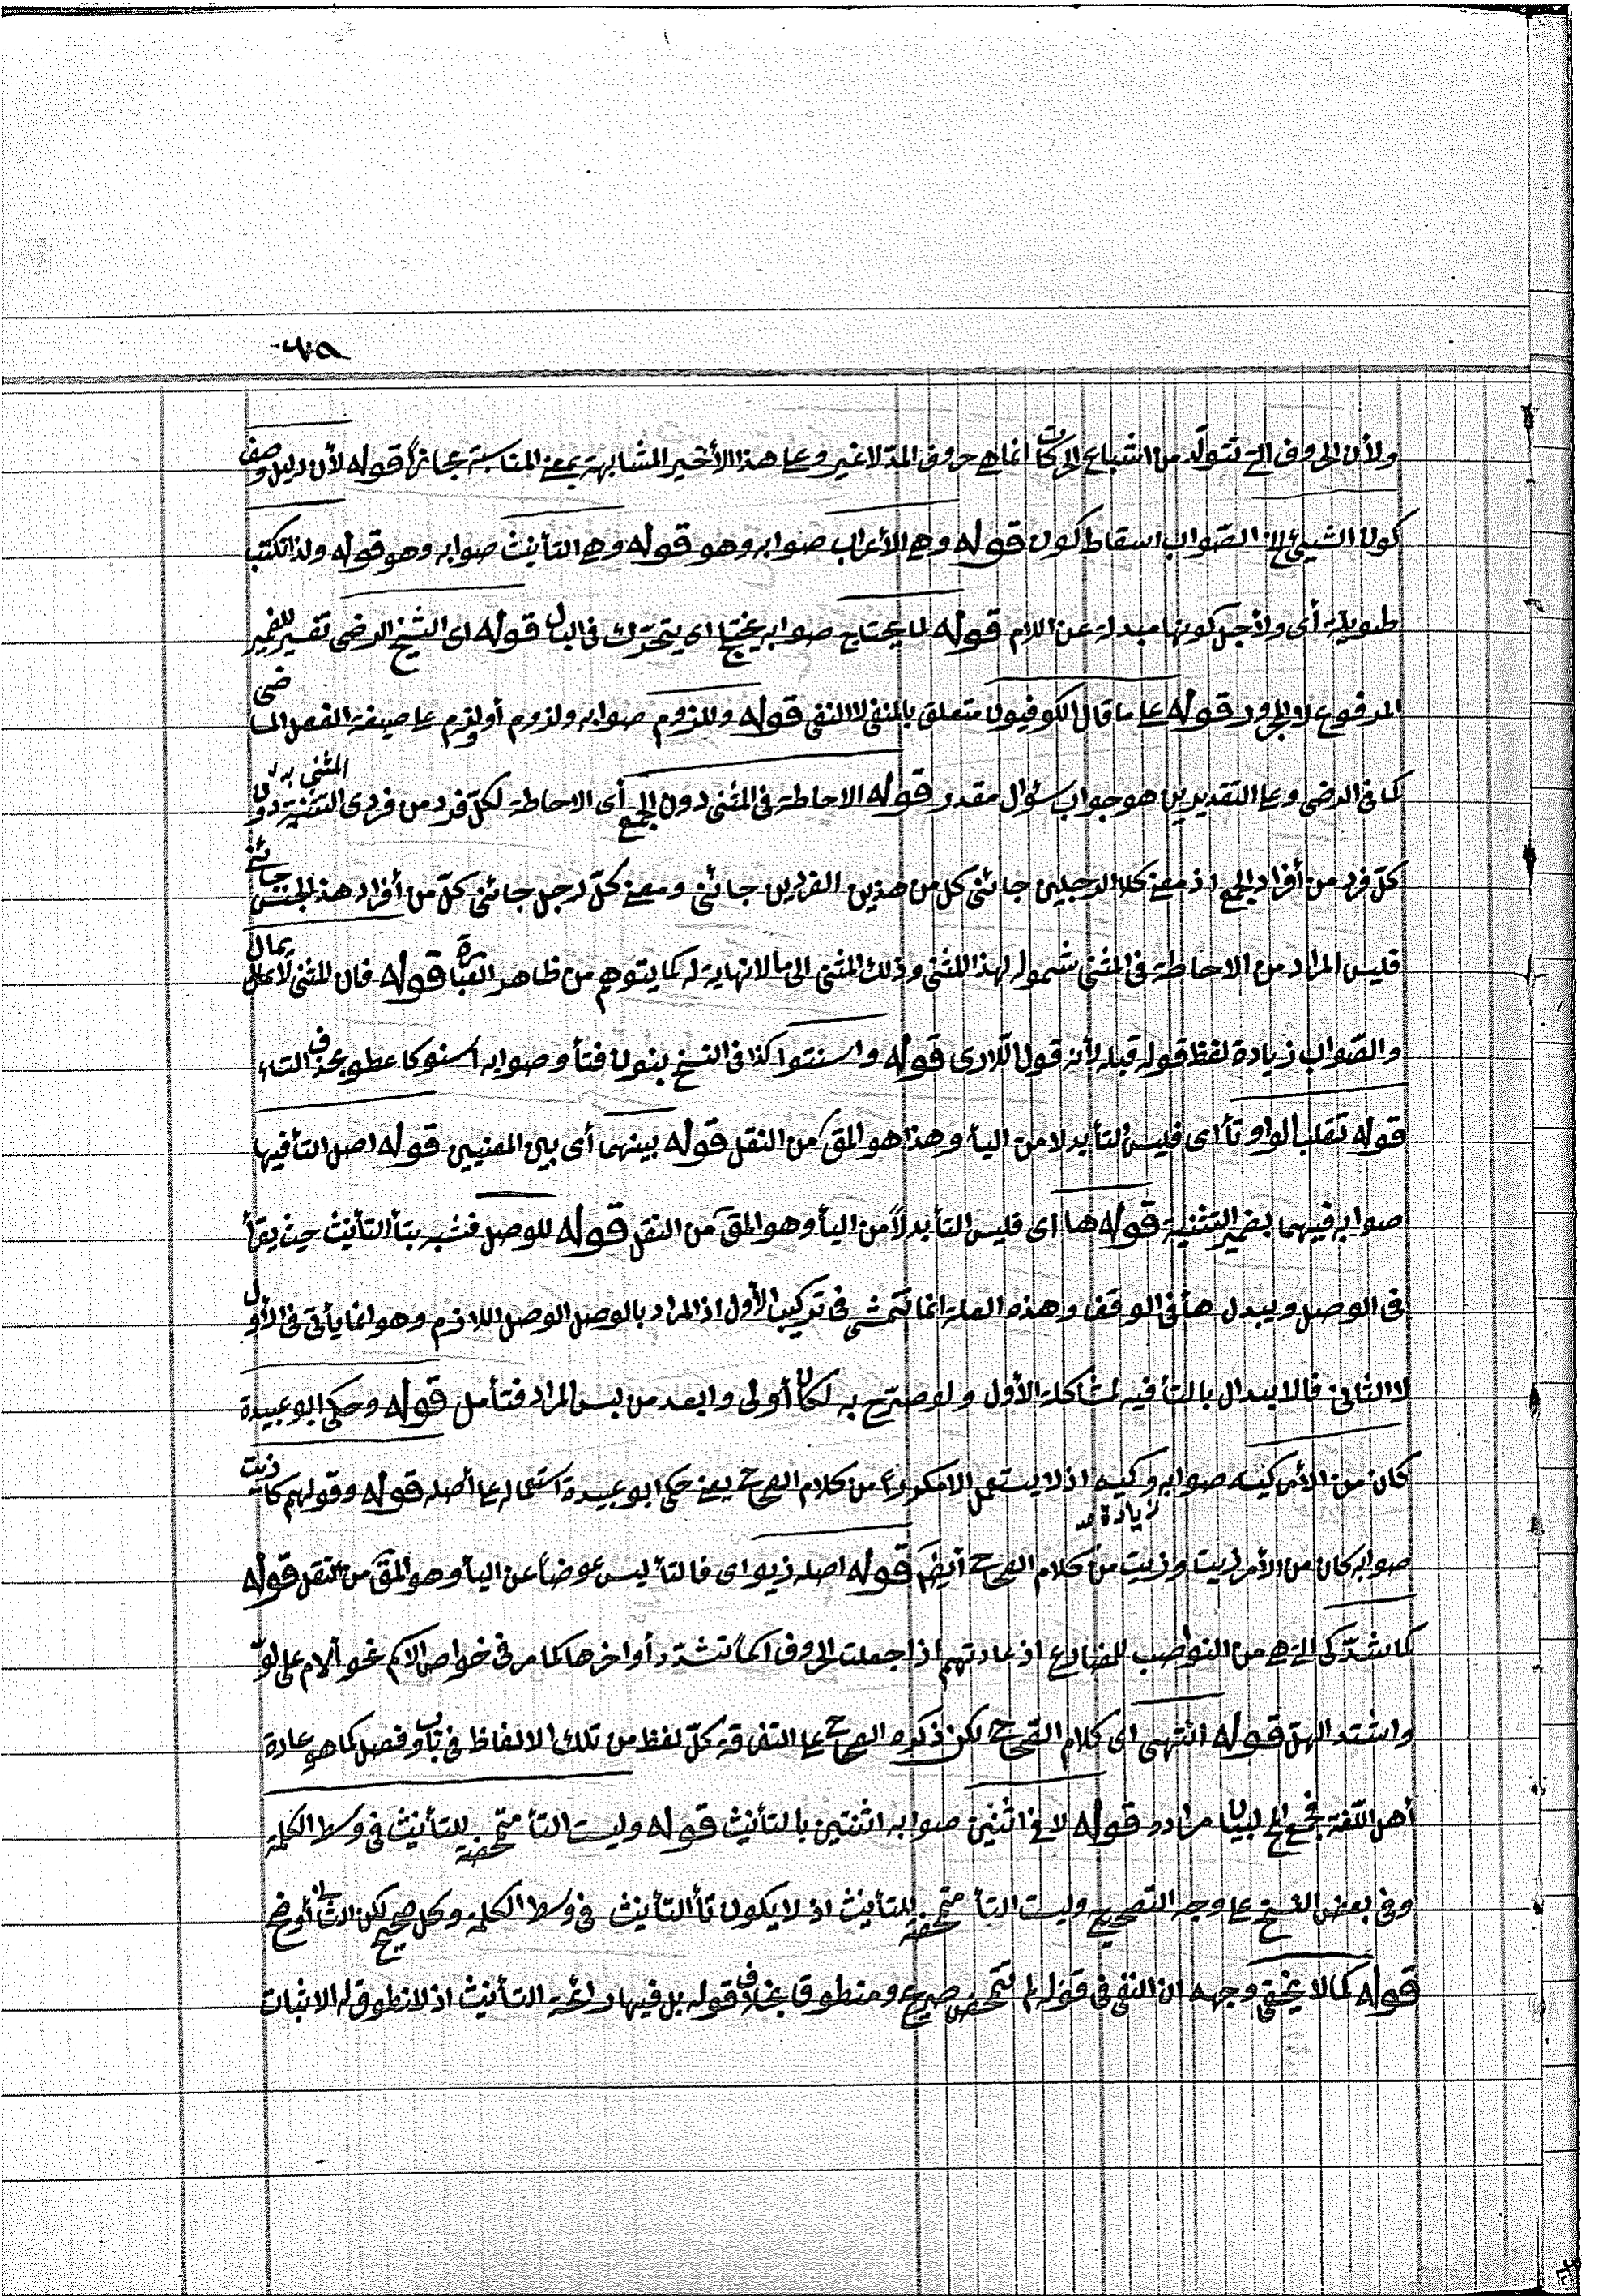 ولأن الحروف التي تتولّد من اشباع الحركات انما هي حروف المدّ لاغير وعلى هذا الأخير المشابهة بمعنى المناسبة مجازاً قوله لأن دليل وصف
كون الشيئ الخ الصّواب اسقاط كون قوله وهي الأعراب صوابه وهو قوله وهي التأنيث صوابه وهو قوله ولذا تكتب
طويلة أى ولأجل كونها مبدلة عن اللام قوله لما يحتاج صوابه يختلج اى يتحرّك فى البال قوله اى الشيخ الرضى تفسير للضمير
المرفوع لا المجرور قوله على ما قال الكوفيون متعلق بالمنفى لا النفى قوله وللزوم صوابه ولزوم أو لزم على صيغة الفعل الماضى
كما فى الرضى وعلى التقديرين هو جواب سؤال مقدر قوله الاحاطة فى المثنى دون الجمع أى الاحاطة لكلّ فرد من فردى التثنية دون
كلّ فرد من أفراد الجمع اذ معنى كلا الرجلين جائنى كل من هذين الفردين جائنى ومعنى كلّ رجل جائنى كلّ من أفراد هذا الجنس جائنى
فليس المراد من الاحاطة فى المثنى شموله لهذا المثنى وذلك المثنى الى ما لا نهاية له كما يتوهم من ظاهر العبارة قوله فان المثنى لا يمال
والصّواب زيادة لفظ قوله قبله لأنه قول اللّارى قوله واسنتوا كذا فى النسخ بنون فتأ وصوابه اسنوكا عطو بحذف التاء
قوله تقلب الواو تأ اى فليس التأ بدلا من اليأ وهذا هو المق من النقل قوله بينهما أى بين المعنيين قوله اصل التأ فيها
صوابه فيهما بضمير التثنية قوله ها اى فليس التأ بدلاً من اليأ وهو المق من النقل قوله للوصل فشبه بتأ التأنيث حيث يقأ
فى الوصل ويبدل هأ فى الوقف وهذه العلة انما تتمشى فى تركيب الأول اذ المراد بالوصل الوصل اللازم وهو انما يأتى فى الأول
لا الثانى فالابدال بالتأ فيه لمشاكلة الأول ولو صرّح به لكان أولى وابعد من لبس المراد فتأمل قوله وحكى ابو عبيدة
كان من الأمر كيّه صوابه وكيّه اذ لا يستعمل الا مكرراً من كلام الصحح يعنى حكى ابو عبيدة استعماله على أصله قوله وقولهم كان ذيت
صوابه كان من الأمر ذيت وذيت من كلام الصحح أيضً قوله اصله ذيو اى فالتأ ليس عوضاً عن اليأ وهو المق من النقل قوله
كما شدّ كى التى هى من النواصب للمضارع اذ عادتهم اذا جعلت الحروف اسمأ تشدّد أواخرها كما مر فى خواص الاسم نحو ألام على لوّ
واشتد الهلّ قوله انتهى اى كلام الصّحح لكن ذكره الصحح على التفرقة كلّ لفظ من تلك الالفاظ فى باب وفصل كما هو عادة
أهل اللّغة فجمع الخ لبيان مراده قوله لا فى اثنين صوابه اثنتين بالتأنيث قوله وليست التأ متمحضة للتأنيث فى وسط الكلمة
وفى بعض النسخ على وجه التصحيح وليست التأ متمحضة للتأنيث اذ لا يكون تأ التأنيث فى وسط الكلمة وكل صحيح لكن الثانى أوضح
قوله كما لا يخفى وجهه ان النفى فى قوله لم تتمحض صريح ومنطوق بخلاف قوله بل فيها رائحة التأنيث اذ لا منطوق له الاثبات